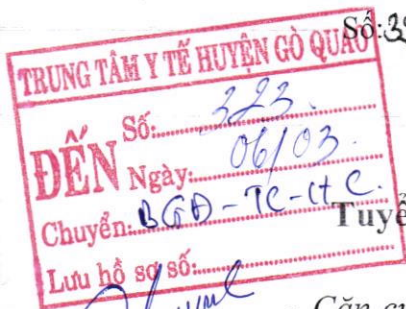 Số:
TRUNG TÂM Y TẾ HUYỆN GÒ QUAO
ĐẾN
Số: 323.
Ngày: 06/03.
Chuyển: BGĐ-TC-HC.
Lưu hồ sơ số:
Tuyể
Căn cứ